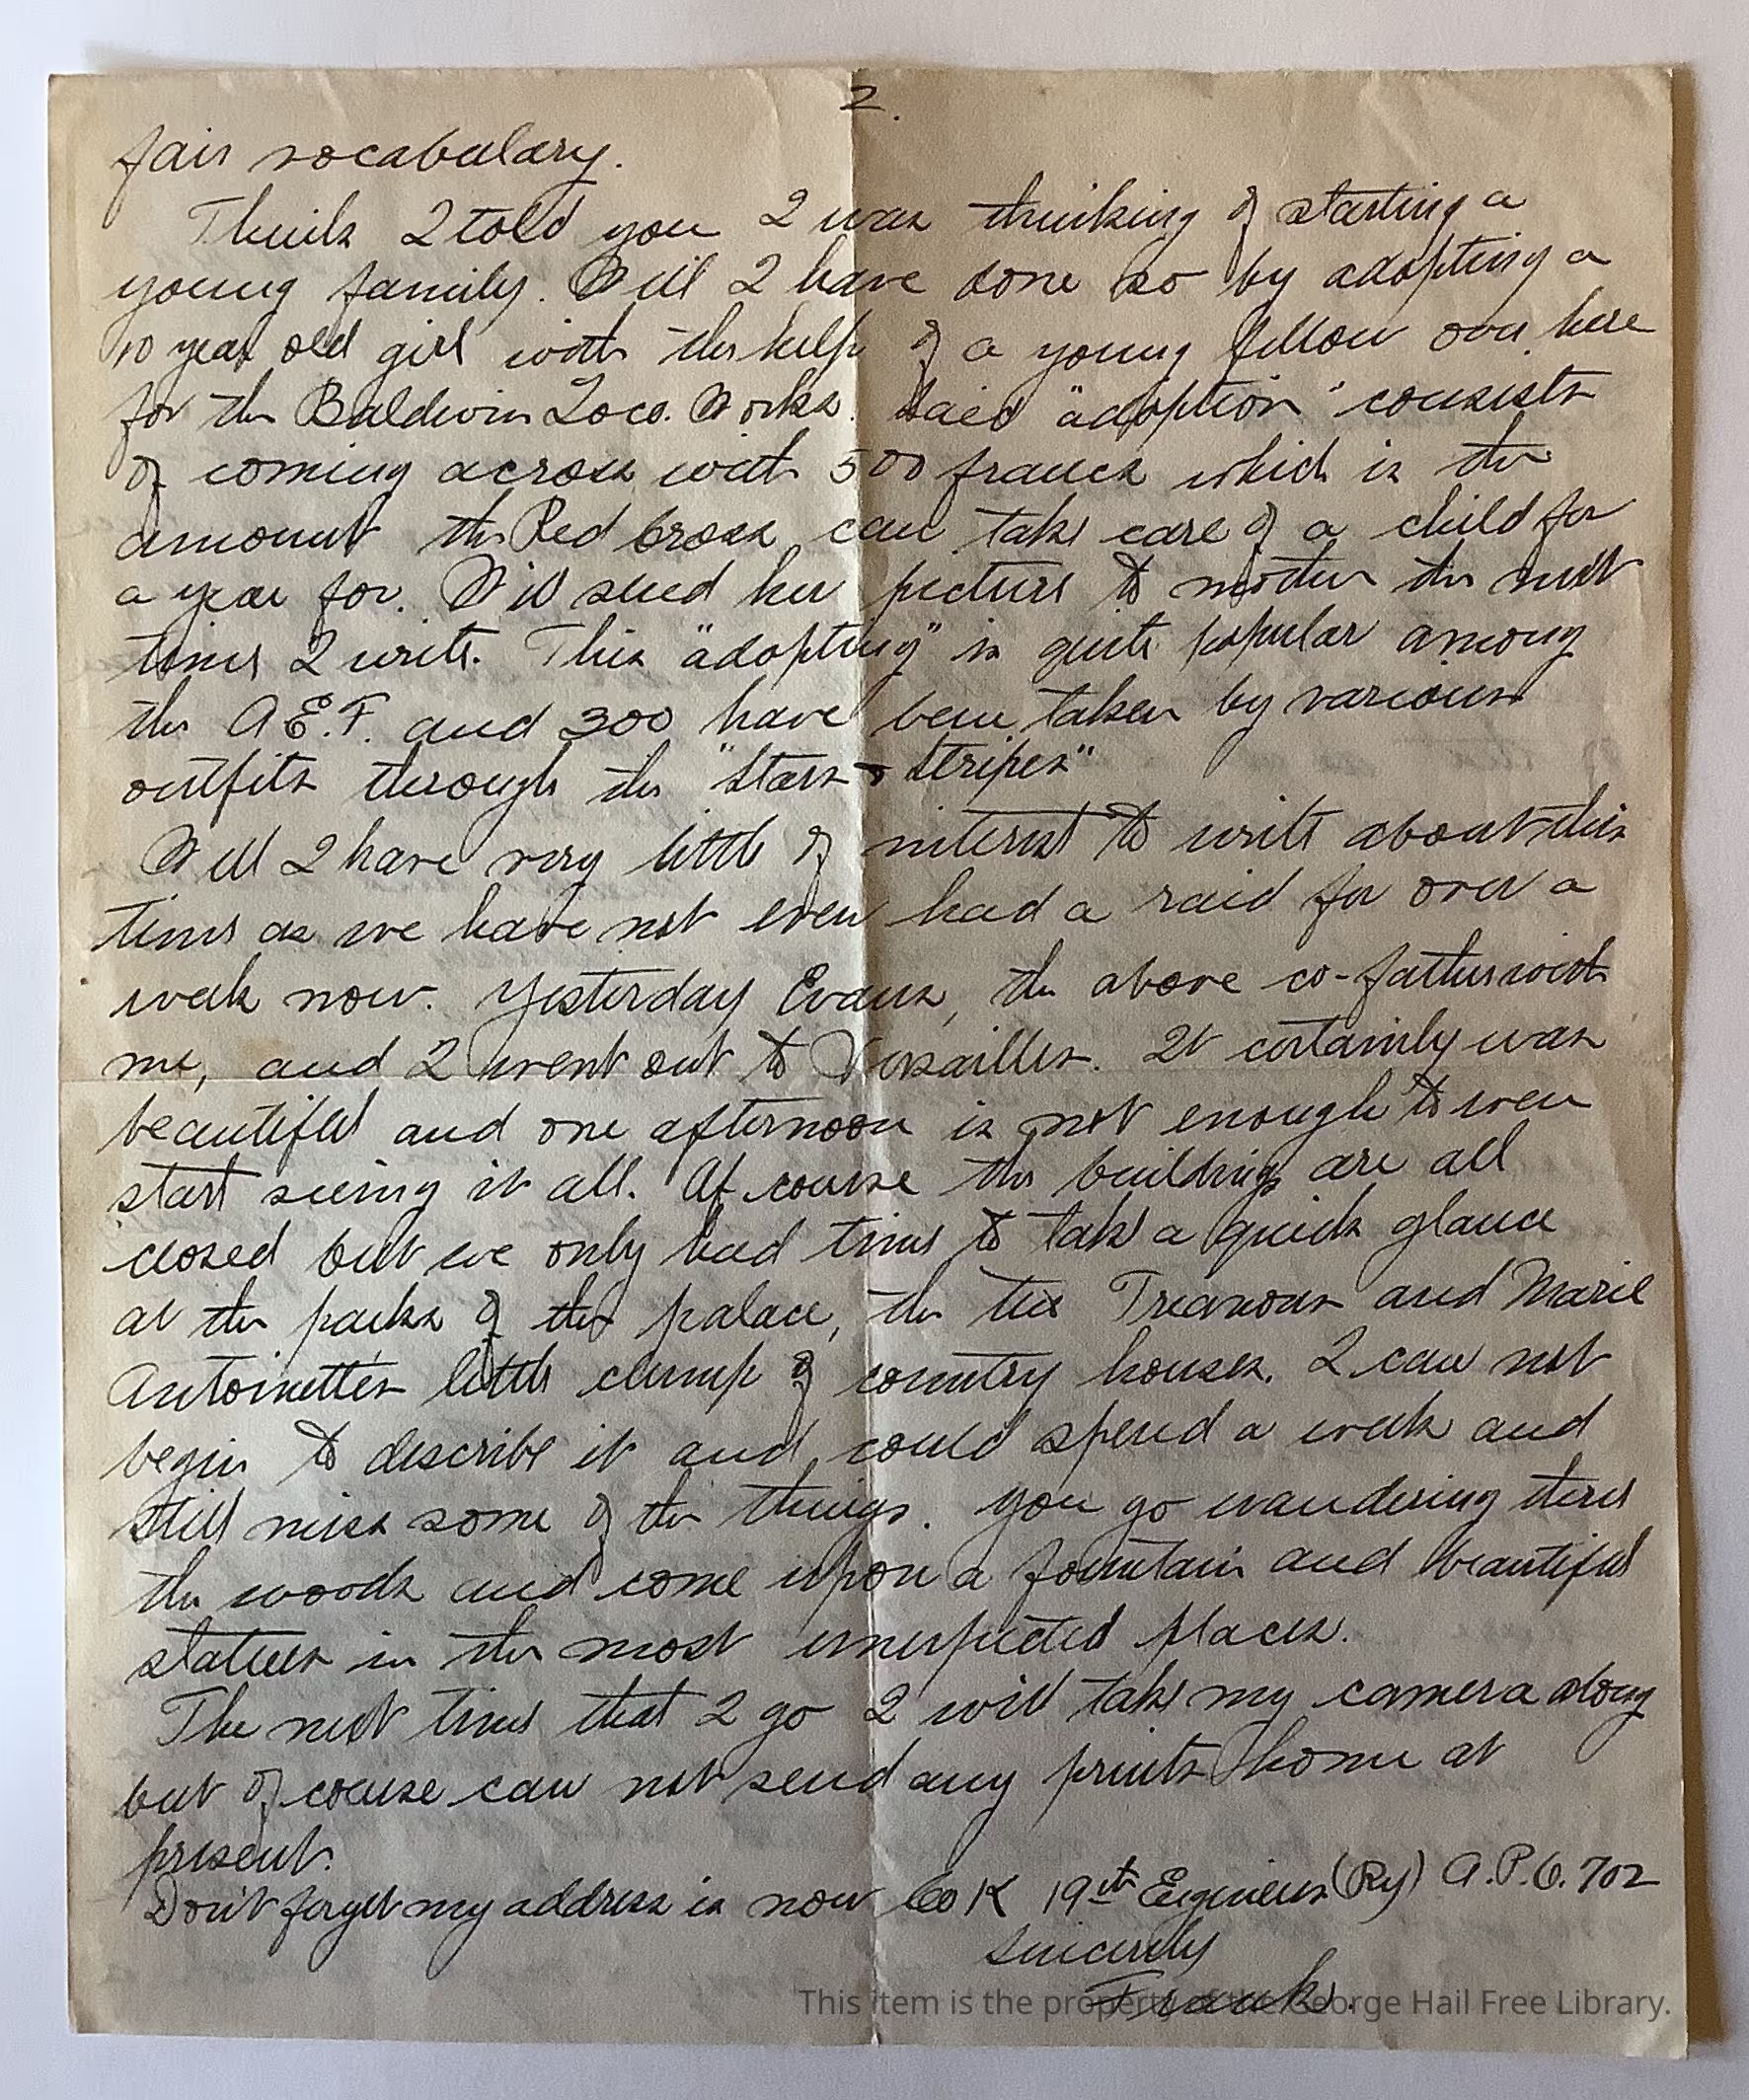 2.
fair vocabulary.
Think I told you I was thinking of starting a
young family. Well I have done so by adopting a
10 year old girl with the help of a young fellow over here
for the Baldwin Loco. Works. Said "adoption" consists
of coming across with 500 francs which is the
amount the Red Cross can take care of a child for
a year for. Will send her picture to mother the next
time I write. This "adopting" is quite popular among
the A.E.F. and 300 have been taken by various
outfits through the "Stars & Stripes"
Well I have very little of interest to write about this
time as we have not even had a raid for over a
week now. Yesterday Evans, the above co-father with
me, and I went out to Versailles. It certainly was
beautiful and one afternoon is not enough to even
start seeing it all. Of course the buildings are all
closed but we only had time to take a quick glance
at the parks of the palace, the two Trianons and Marie
Antoinette's little clump of country houses. I can not
begin to describe it and could spend a week and
still miss some of the things. You go wandering thru
the woods and come upon a fountain and beautiful
statues in the most unexpected places.
The next time that I go I will take my camera along
but of course can not send any prints home at
present.
Don't forget my address is now Co K 19th Engineers (Ry) A.P.O. 702
Sincerely
Frank.
This item is the property of the George Hail Free Library.